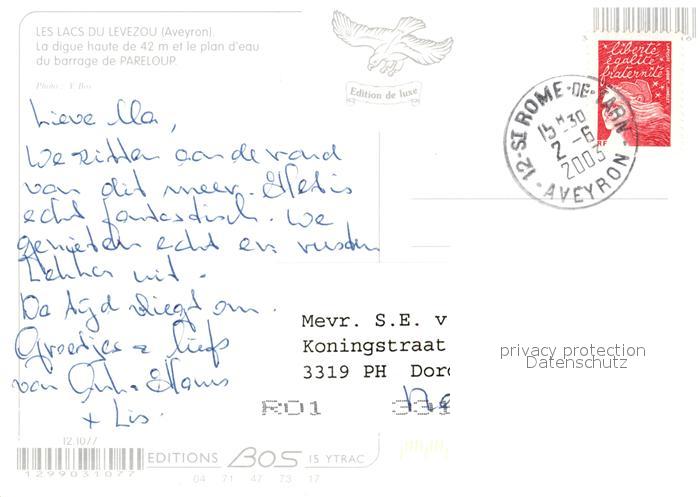 LES LACS DU LEVEZOU (Aveyron).
La digue haute de 42 m et le plan d'eau
du barrage de PARELOUP.
Photo : Y. Bos
Edition de luxe
liberté
égalité
fraternité
RF
12-ST ROME-DE-TARN
15H30
2-6
2003
AVEYRON
Lieve Ma,
We zitten aan de rand
van dit meer. Het is
echt fantastisch. We
genieten echt en rusten
lekker uit.
De tijd vliegt om.
Groetjes & liefs
van Hans
+ Lis.
Mevr. S.E. v
Koningstraat
3319 PH Dord
RD1 331
privacy protection
Datenschutz
12.1077
1299031077
EDITIONS BOS 15 YTRAC
04 71 47 73 17